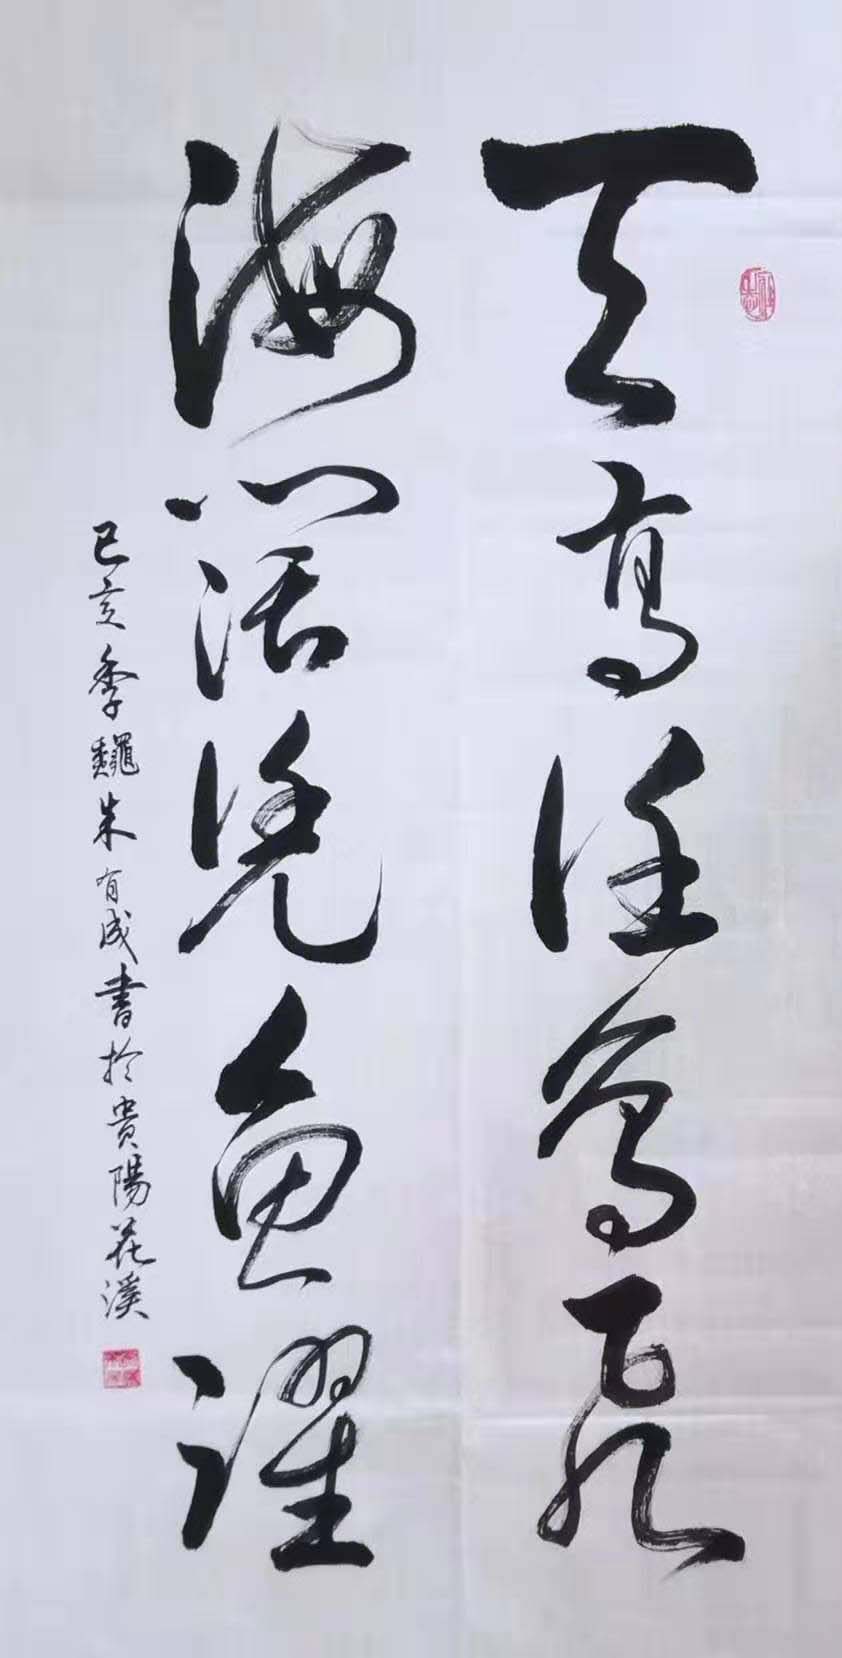 天高任鳥飛
海闊凭魚躍
己亥季龝朱有成書於貴陽花溪